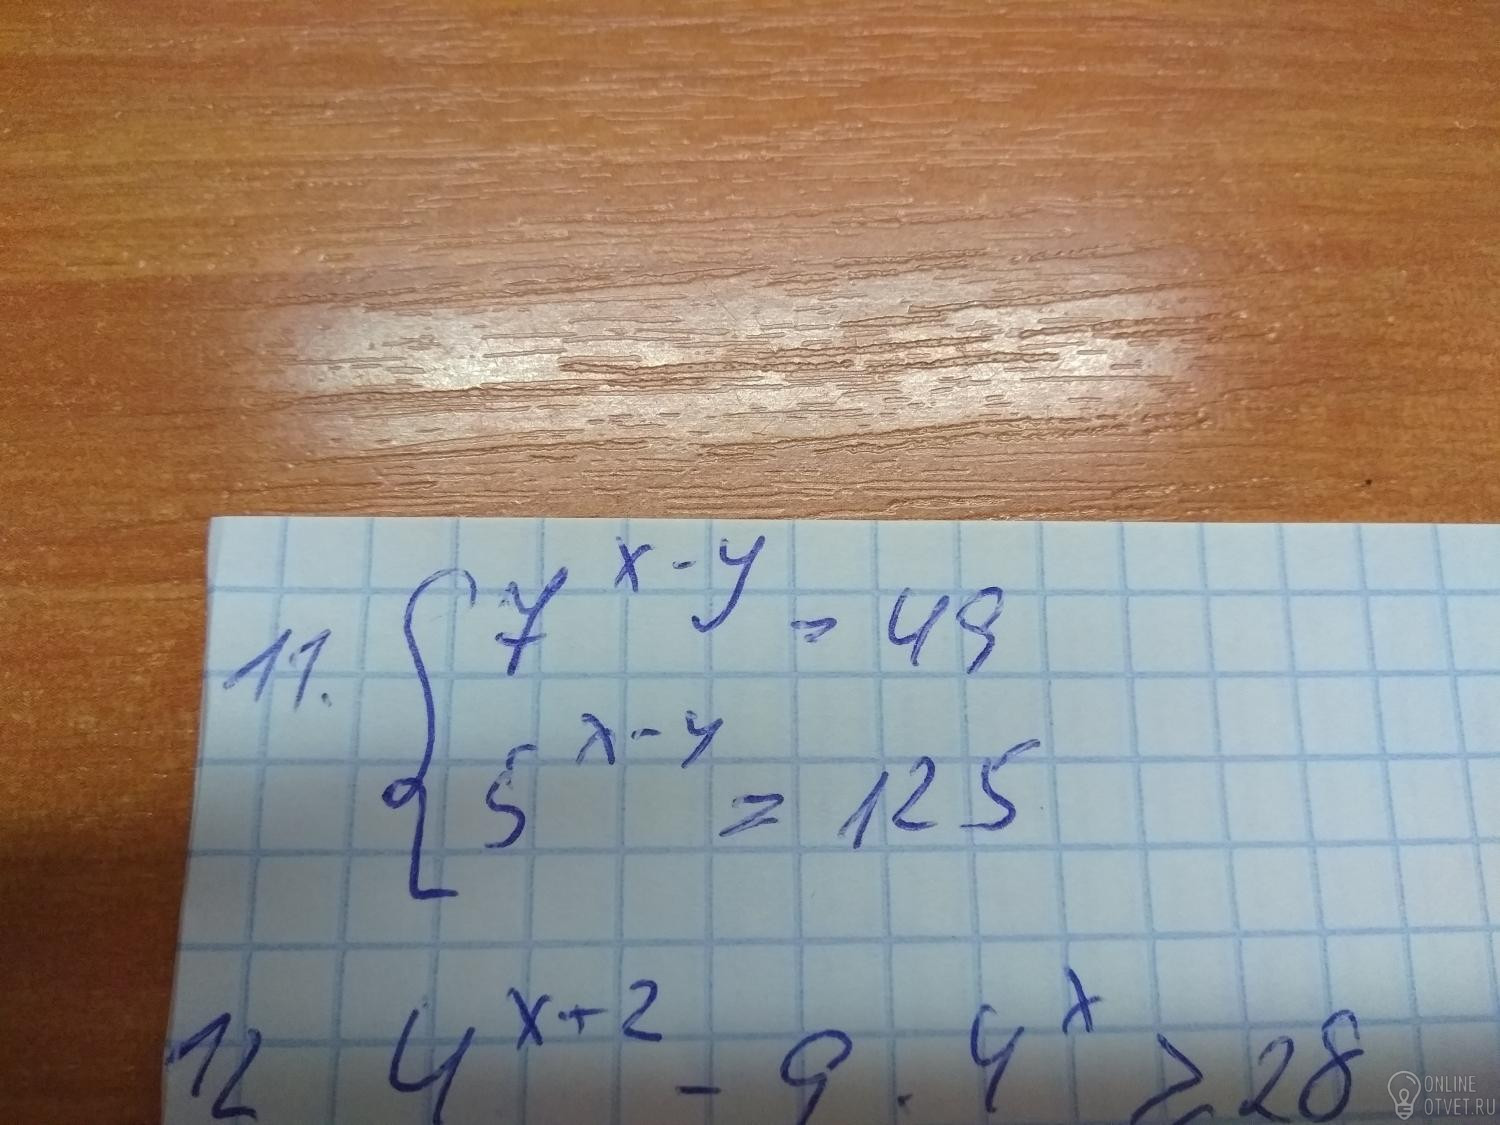 11. { 7^{x-y} = 49
5^{x-y} = 125
12 4^{x+2} - 9 · 4^x ≥ 28
ONLINE
OTVET.RU